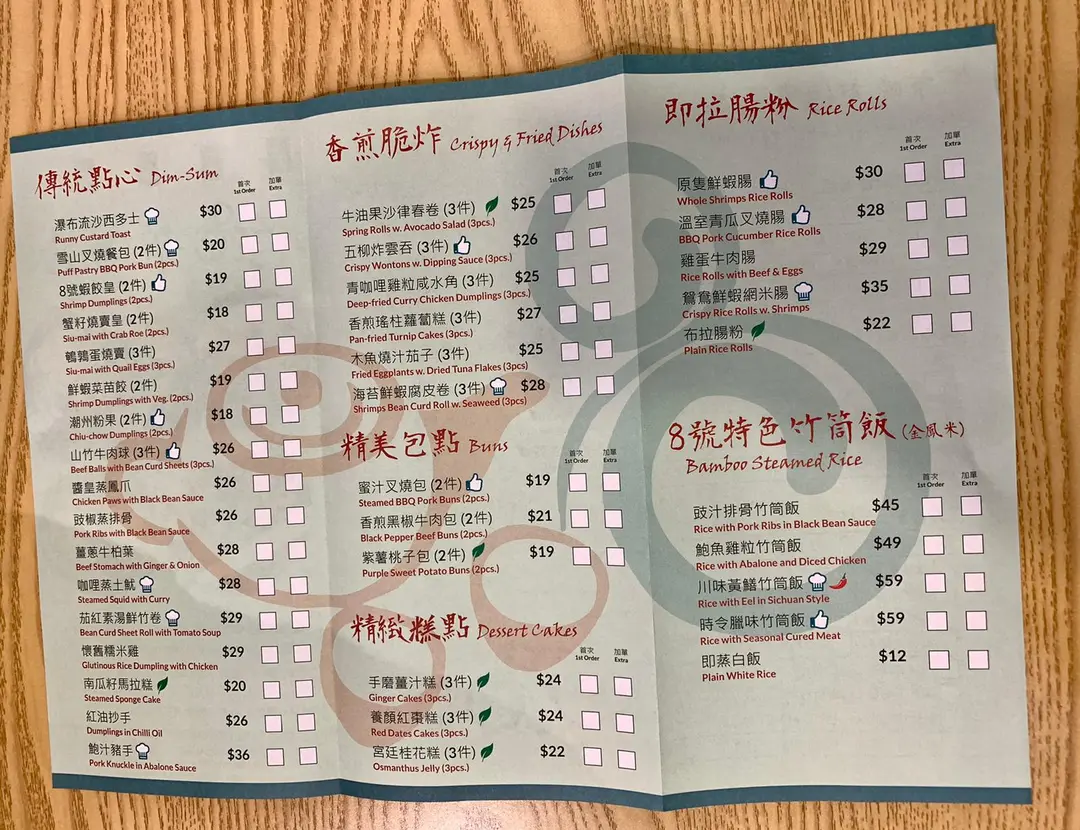 傳統點心 Dim-Sum
首次 加單
1st Order Extra
瀑布流沙西多士 $30
Runny Custard Toast
雪山叉燒餐包 (2件) $20
Puff Pastry BBQ Pork Bun (2pcs.)
8號蝦餃皇 (2件) $19
Shrimp Dumplings (2pcs.)
蟹籽燒賣皇 (2件) $18
Siu-mai with Crab Roe (2pcs.)
鵪鶉蛋燒賣 (3件) $27
Siu-mai with Quail Eggs (3pcs.)
鮮蝦菜苗餃 (2件) $19
Shrimp Dumplings with Veg. (2pcs.)
潮州粉果 (2件) $18
Chiu-chow Dumplings (2pcs.)
山竹牛肉球 (3件) $26
Beef Balls with Bean Curd Sheets (3pcs.)
醬皇蒸鳳爪 $26
Chicken Paws with Black Bean Sauce
豉椒蒸排骨 $26
Pork Ribs with Black Bean Sauce
薑蔥牛柏葉 $28
Beef Stomach with Ginger & Onion
咖哩蒸土魷 $28
Steamed Squid with Curry
茄紅素湯鮮竹卷 $29
Bean Curd Sheet Roll with Tomato Soup
懷舊糯米雞 $29
Glutinous Rice Dumpling with Chicken
南瓜籽馬拉糕 $20
Steamed Sponge Cake
紅油抄手 $26
Dumplings in Chilli Oil
鮑汁豬手 $36
Pork Knuckle in Abalone Sauce
香煎脆炸 Crispy & Fried Dishes
首次 加單
1st Order Extra
牛油果沙律春卷 (3件) $25
Spring Rolls w. Avocado Salad (3pcs.)
五柳炸雲吞 (3件) $26
Crispy Wontons w. Dipping Sauce (3pcs.)
青咖哩雞粒咸水角 (3件) $25
Deep-fried Curry Chicken Dumplings (3pcs.)
香煎瑤柱蘿蔔糕 (3件) $27
Pan-fried Turnip Cakes (3pcs.)
木魚燒汁茄子 (3件) $25
Fried Eggplants w. Dried Tuna Flakes (3pcs)
海苔鮮蝦腐皮卷 (3件) $28
Shrimps Bean Curd Roll w. Seaweed (3pcs)
精美包點 Buns
首次 加單
1st Order Extra
蜜汁叉燒包 (2件) $19
Steamed BBQ Pork Buns (2pcs.)
香煎黑椒牛肉包 (2件) $21
Black Pepper Beef Buns (2pcs.)
紫薯桃子包 (2件) $19
Purple Sweet Potato Buns (2pcs.)
精緻糕點 Dessert Cakes
首次 加單
1st Order Extra
手磨薑汁糕 (3件) $24
Ginger Cakes (3pcs.)
養顏紅棗糕 (3件) $24
Red Dates Cakes (3pcs.)
宮廷桂花糕 (3件) $22
Osmanthus Jelly (3pcs.)
即拉腸粉 Rice Rolls
首次 加單
1st Order Extra
原隻鮮蝦腸 $30
Whole Shrimps Rice Rolls
溫室青瓜叉燒腸 $28
BBQ Pork Cucumber Rice Rolls
雞蛋牛肉腸 $29
Rice Rolls with Beef & Eggs
鴛鴦鮮蝦網米腸 $35
Crispy Rice Rolls w. Shrimps
布拉腸粉 $22
Plain Rice Rolls
8號特色竹筒飯 (金鳳米)
Bamboo Steamed Rice
首次 加單
1st Order Extra
豉汁排骨竹筒飯 $45
Rice with Pork Ribs in Black Bean Sauce
鮑魚雞粒竹筒飯 $49
Rice with Abalone and Diced Chicken
川味黃鱔竹筒飯 $59
Rice with Eel in Sichuan Style
時令臘味竹筒飯 $59
Rice with Seasonal Cured Meat
即蒸白飯 $12
Plain White Rice